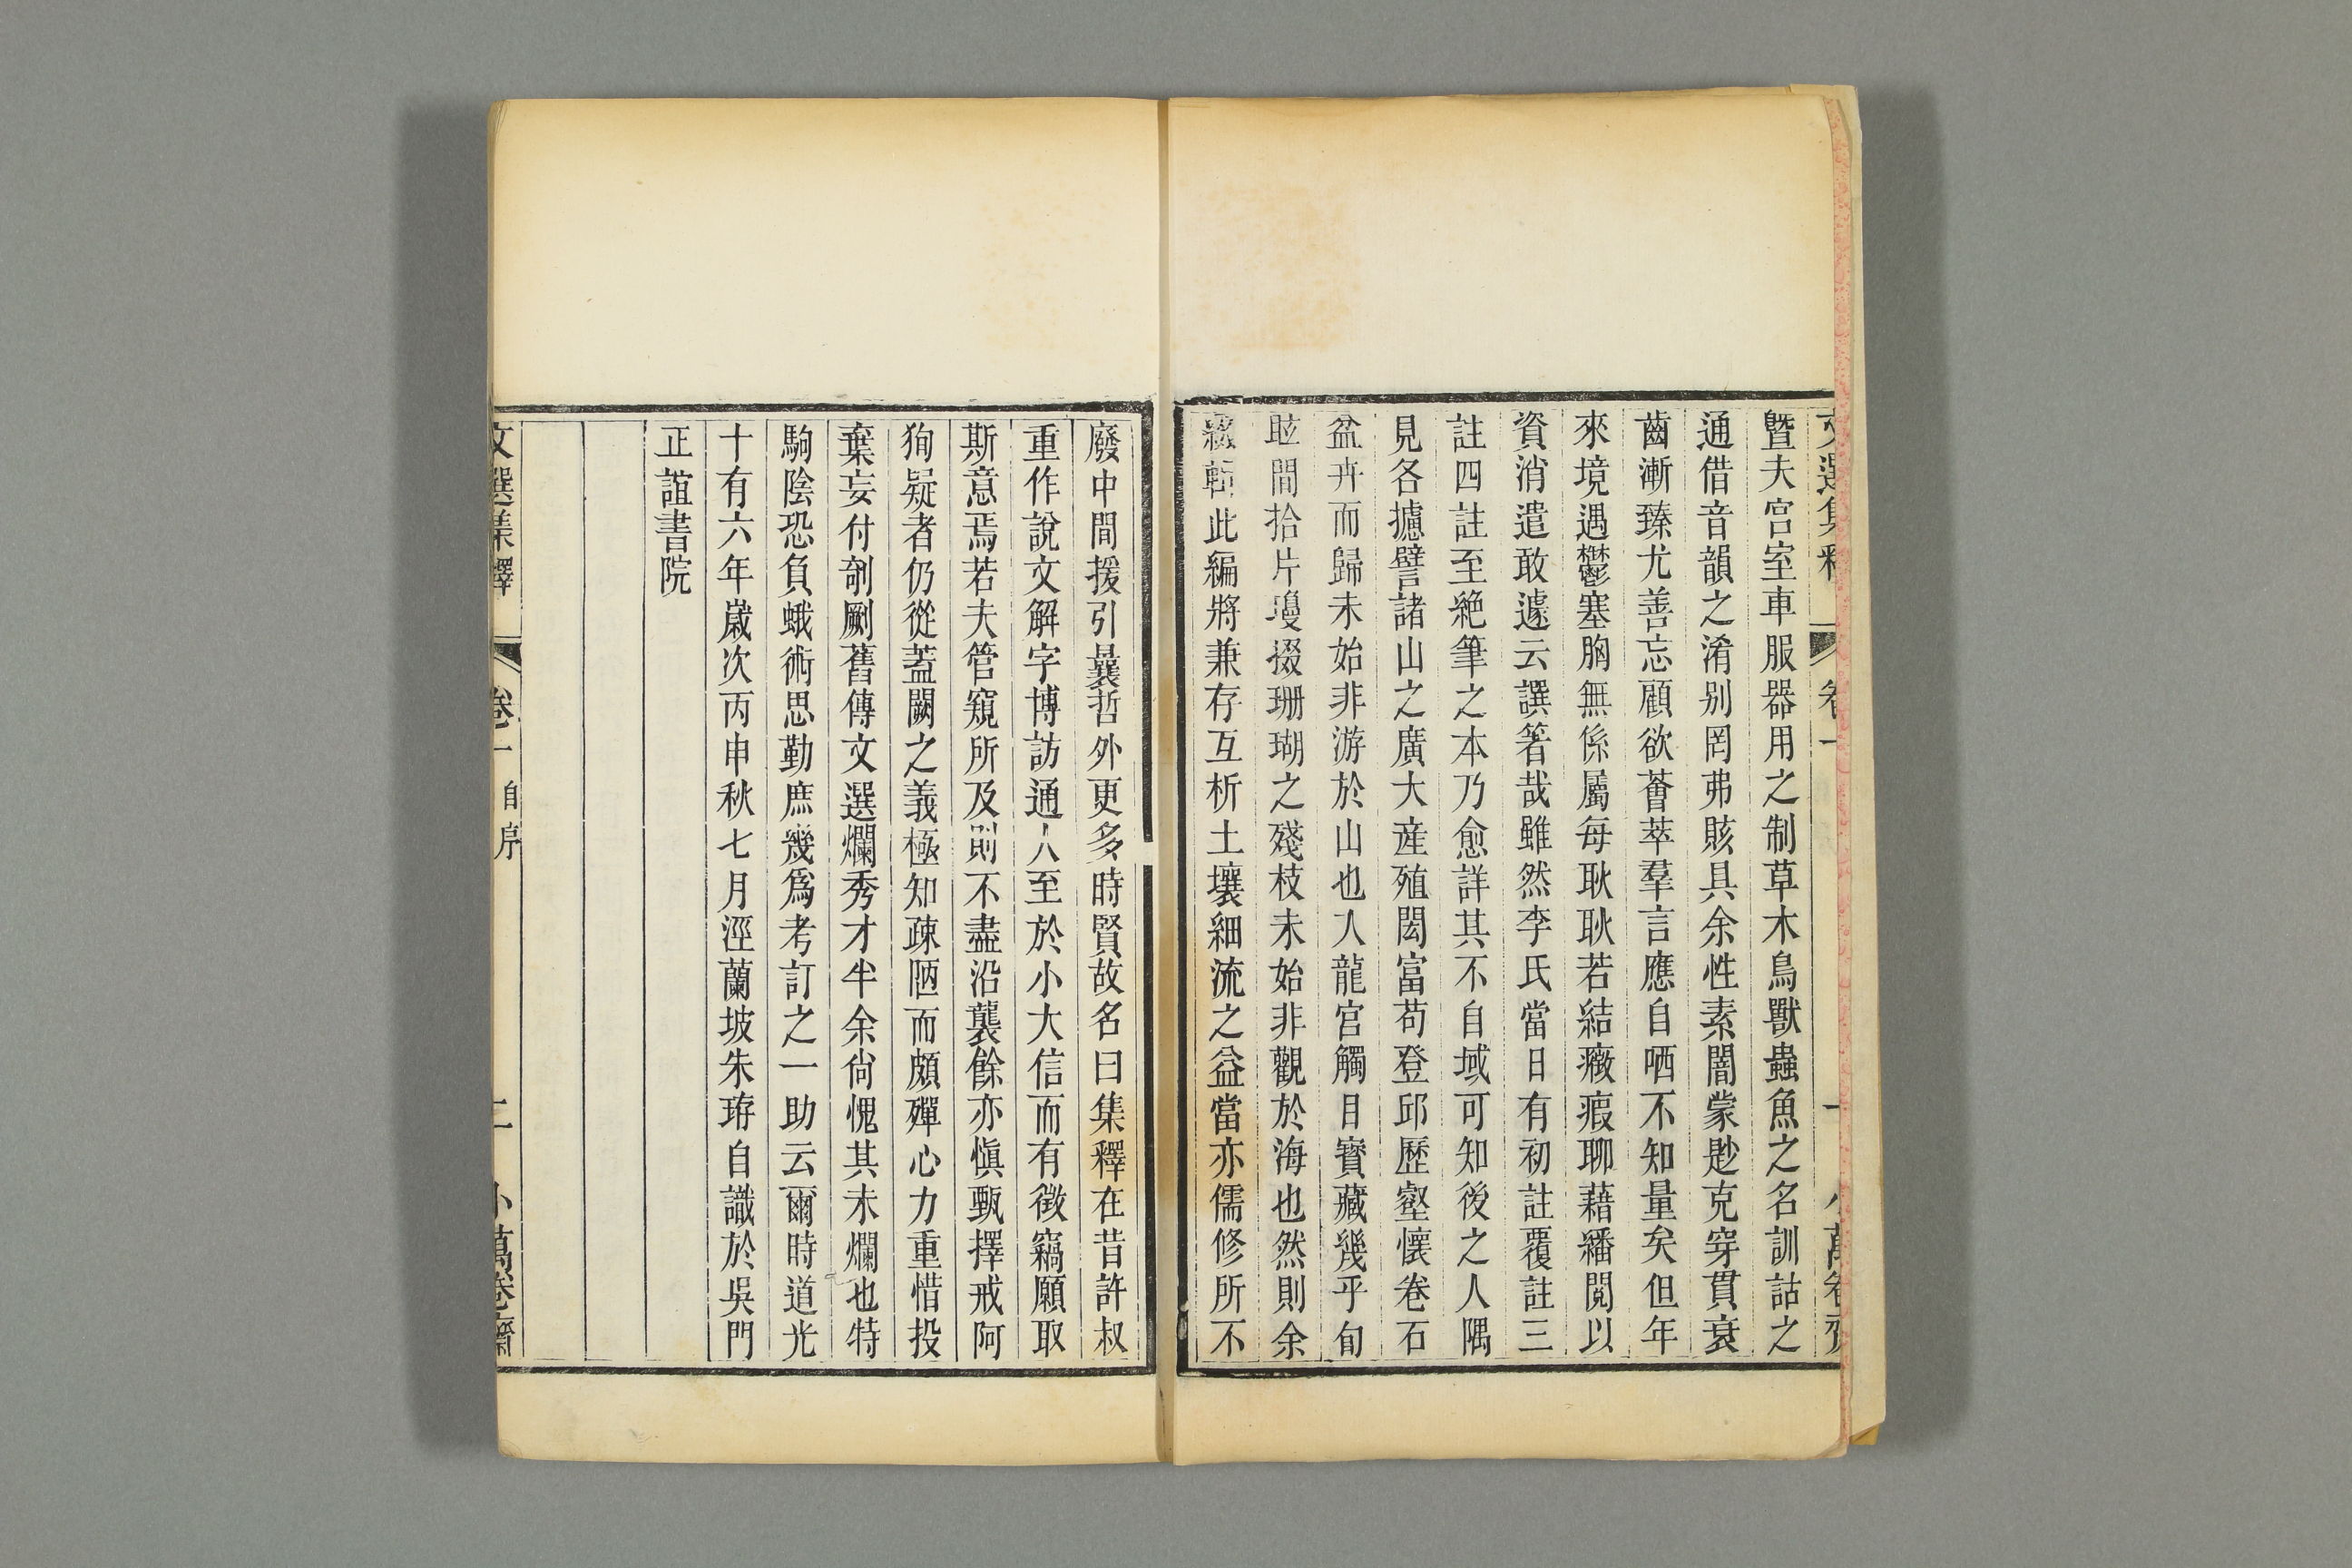 文選集釋 卷一 一 小萬卷齋
曁夫宮室車服器用之制草木鳥獸蟲魚之名訓詁之
通借音韻之淆别罔弗賅具余性素闇蒙尟克穿貫衰
齒漸臻尤善忘顧欲薈萃羣言應自哂不知量矣但年
來境遇鬱塞胸無係屬每耿耿若結癥瘕聊藉繙閱以
資消遣敢遽云譔箸哉雖然李氏當日有初註覆註三
註四註至絶筆之本乃愈詳其不自域可知後之人隅
見各攄譬諸山之廣大産殖閎富苟登邱歷壑懷卷石
盆卉而歸未始非游於山也人龍宮觸目寳藏幾乎旬
眩間拾片瓊掇珊瑚之殘枝未始非觀於海也然則余
綴輯此編將兼存互析土壤細流之益當亦儒修所不
廢中間援引曩哲外更多時賢故名曰集釋在昔許叔
重作說文解字博訪通人至於小大信而有徵竊願取
斯意焉若夫管窺所及則不盡沿襲餘亦愼甄擇戒阿
狥疑者仍從蓋闕之義極知疎陋而頗殫心力重惜投
棄妄付剞劂舊傳文選爛秀才半余尙愧其未爛也特
駒陰恐負蛾術思勤庶幾爲考訂之一助云爾時道光
十有六年歲次丙申秋七月涇蘭坡朱珔自識於吳門
正誼書院
文選集釋 卷一 自序 二 小萬卷齋